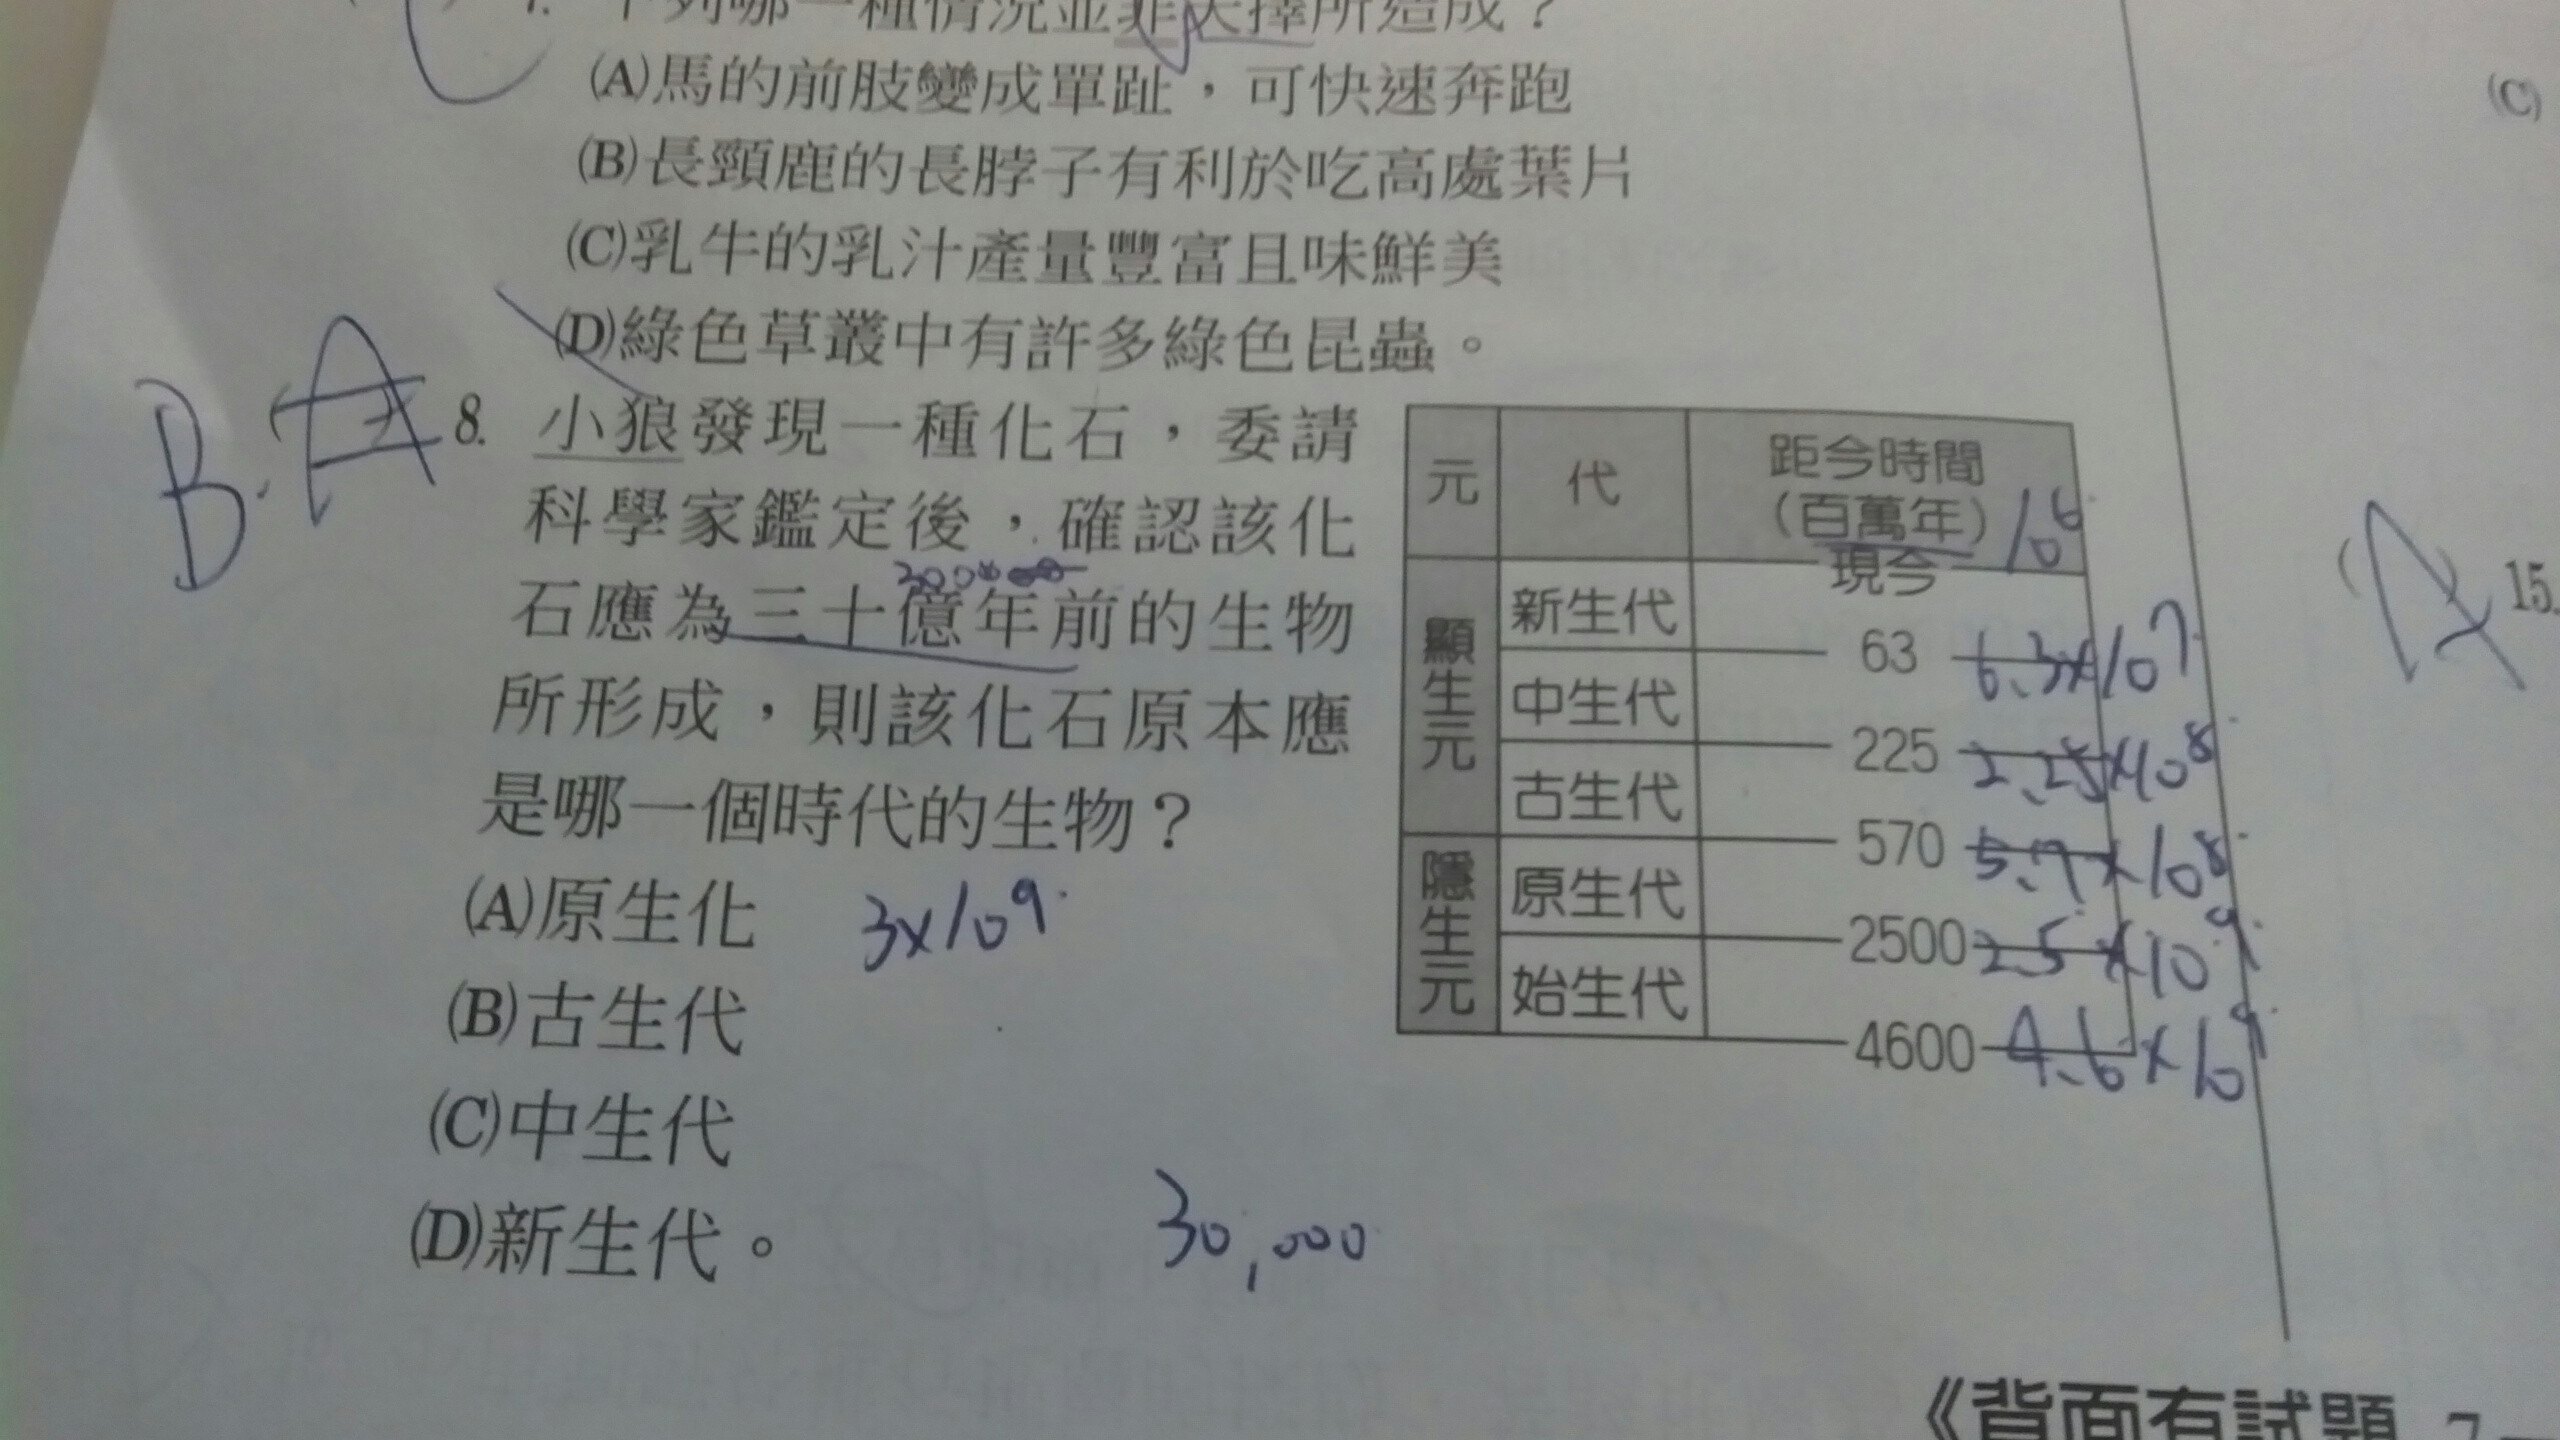 7. 下列哪一種情況並非天擇所造成？
(A)馬的前肢變成單趾，可快速奔跑
(B)長頸鹿的長脖子有利於吃高處葉片
(C)乳牛的乳汁產量豐富且味鮮美
(D)綠色草叢中有許多綠色昆蟲。
B.
A
8. 小狼發現一種化石，委請
科學家鑑定後，確認該化
石應為三十億年前的生物
所形成，則該化石原本應
是哪一個時代的生物？
(A)原生化
3x10⁹
(B)古生代
(C)中生代
(D)新生代。
30,000
元 代 距今時間
（百萬年） 10⁶
現今
顯生元 新生代
63 6.3x10⁷
中生代
225 2.25x10⁸
古生代
570 5.7x10⁸
隱生元 原生代
2500 2.5x10⁹
始生代
4600 4.6x10⁹
(C)
15.
《背面有試題